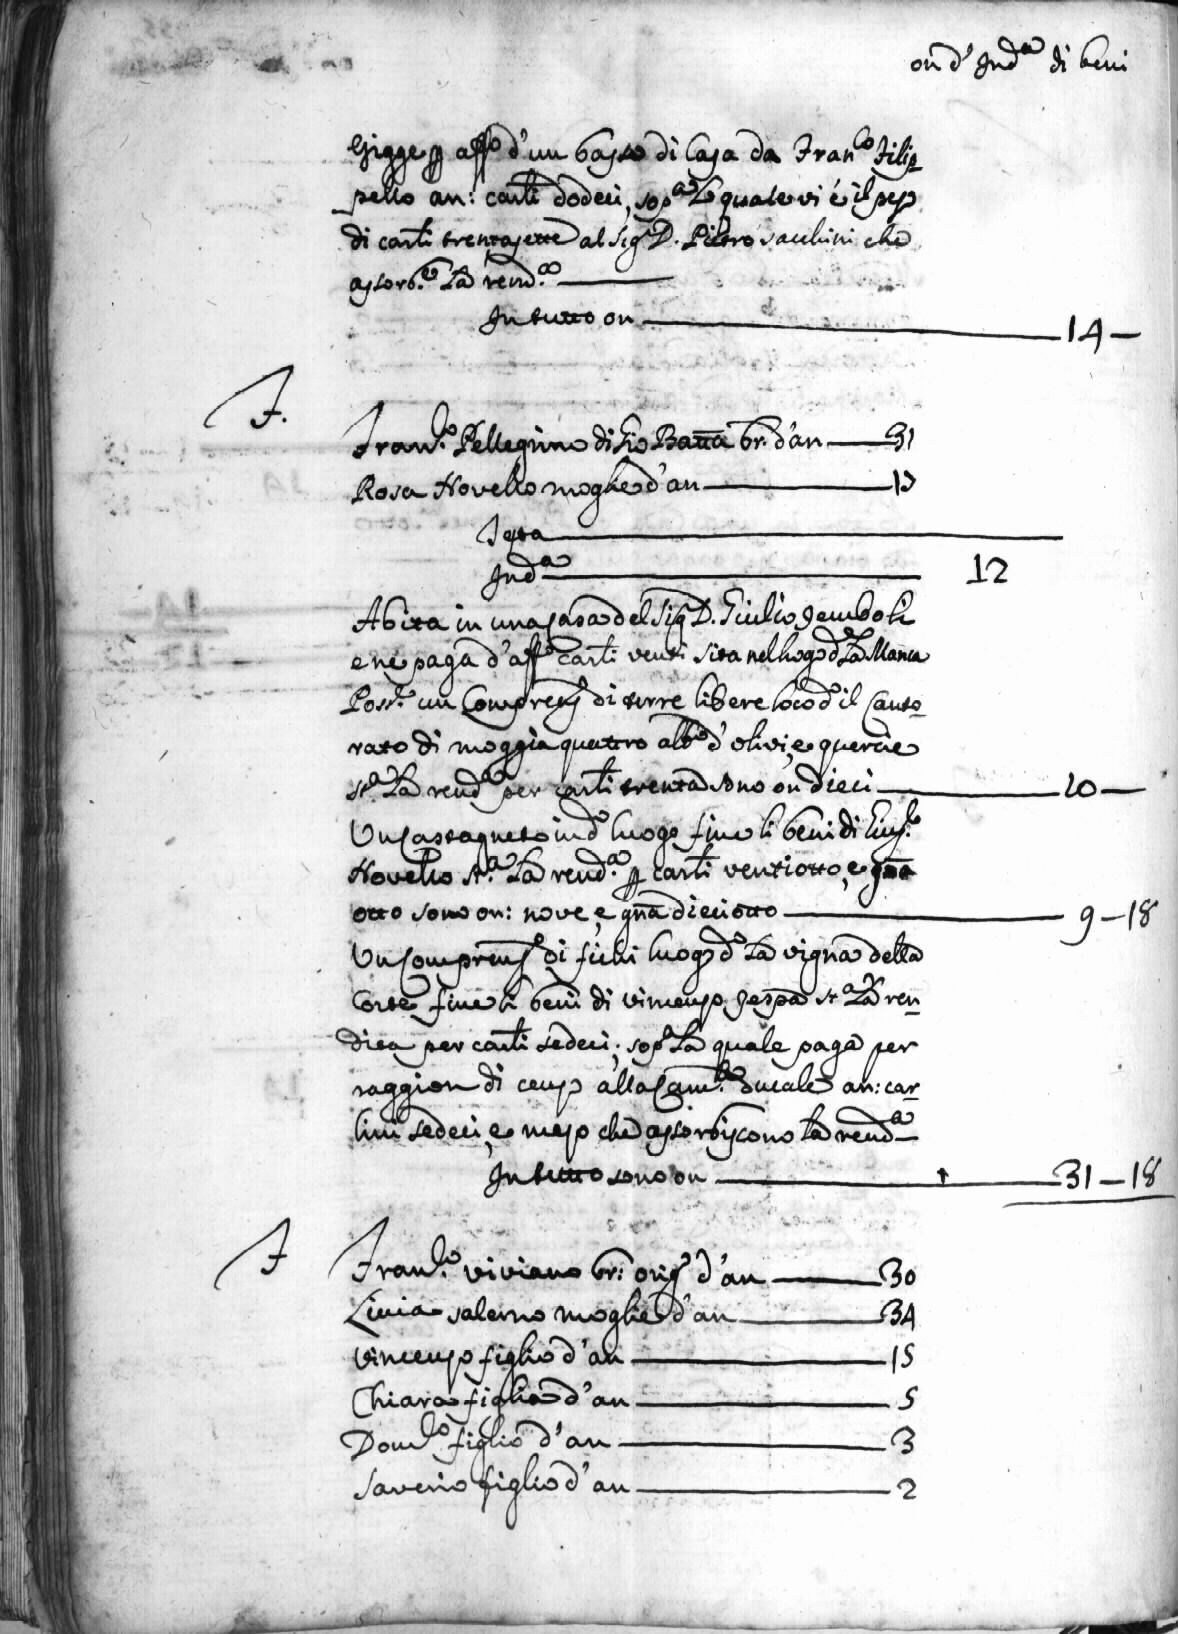 on d' Ind.a di beni
Esigge p aff.o d'un basso di Casa da Fran.co Filip
pello an: carli dodeci, sop.a le quale vi è il peso
di carli trentasette al Sig. D. Pietro Sacchini che
assorb.e la rend.a
In tutto on 14
F.
Fran.co Pellegrino di Gio Batta br. d'an 31
Rosa Novello moglie d'an 17
Testa
Ind.a 12
Abita in una casa del Sig. D. Giulio
e ne paga d'aff.o carli venti sita nel luogo d.o la Manca
Poss.e un Comprens.o di terre libere loco d.o il Canto
rato di moggia quattro alb.o d'olivi, e quercie
st.a la rend.a per carli trenta sono on dieci 10
Un Castagneto in d.o luogo fine li beni di
Novello st.a la rend.a p carli ventiotto, e gna
otto sono on: nove, e gna dieciotto 9-18
Un Comprens.o di fichi luogo d.o la vigna della
Corte fine li beni di Vincenzo st.a la ren
dita per carli sedeci, sop.a la quale paga per
raggion di censo alla Cam.a Ducale an: car
lini sedeci, e mezo che assorbiscono la rend.a
In tutto sono on 31-18
F
Fran.co Viviano br: orig.o d'an 30
Livia Salerno moglie d'an 34
Vincenzo figlio d'an 15
Chiara figlia d'an 5
Dom.co figlio d'an 3
Saverio figlio d'an 2